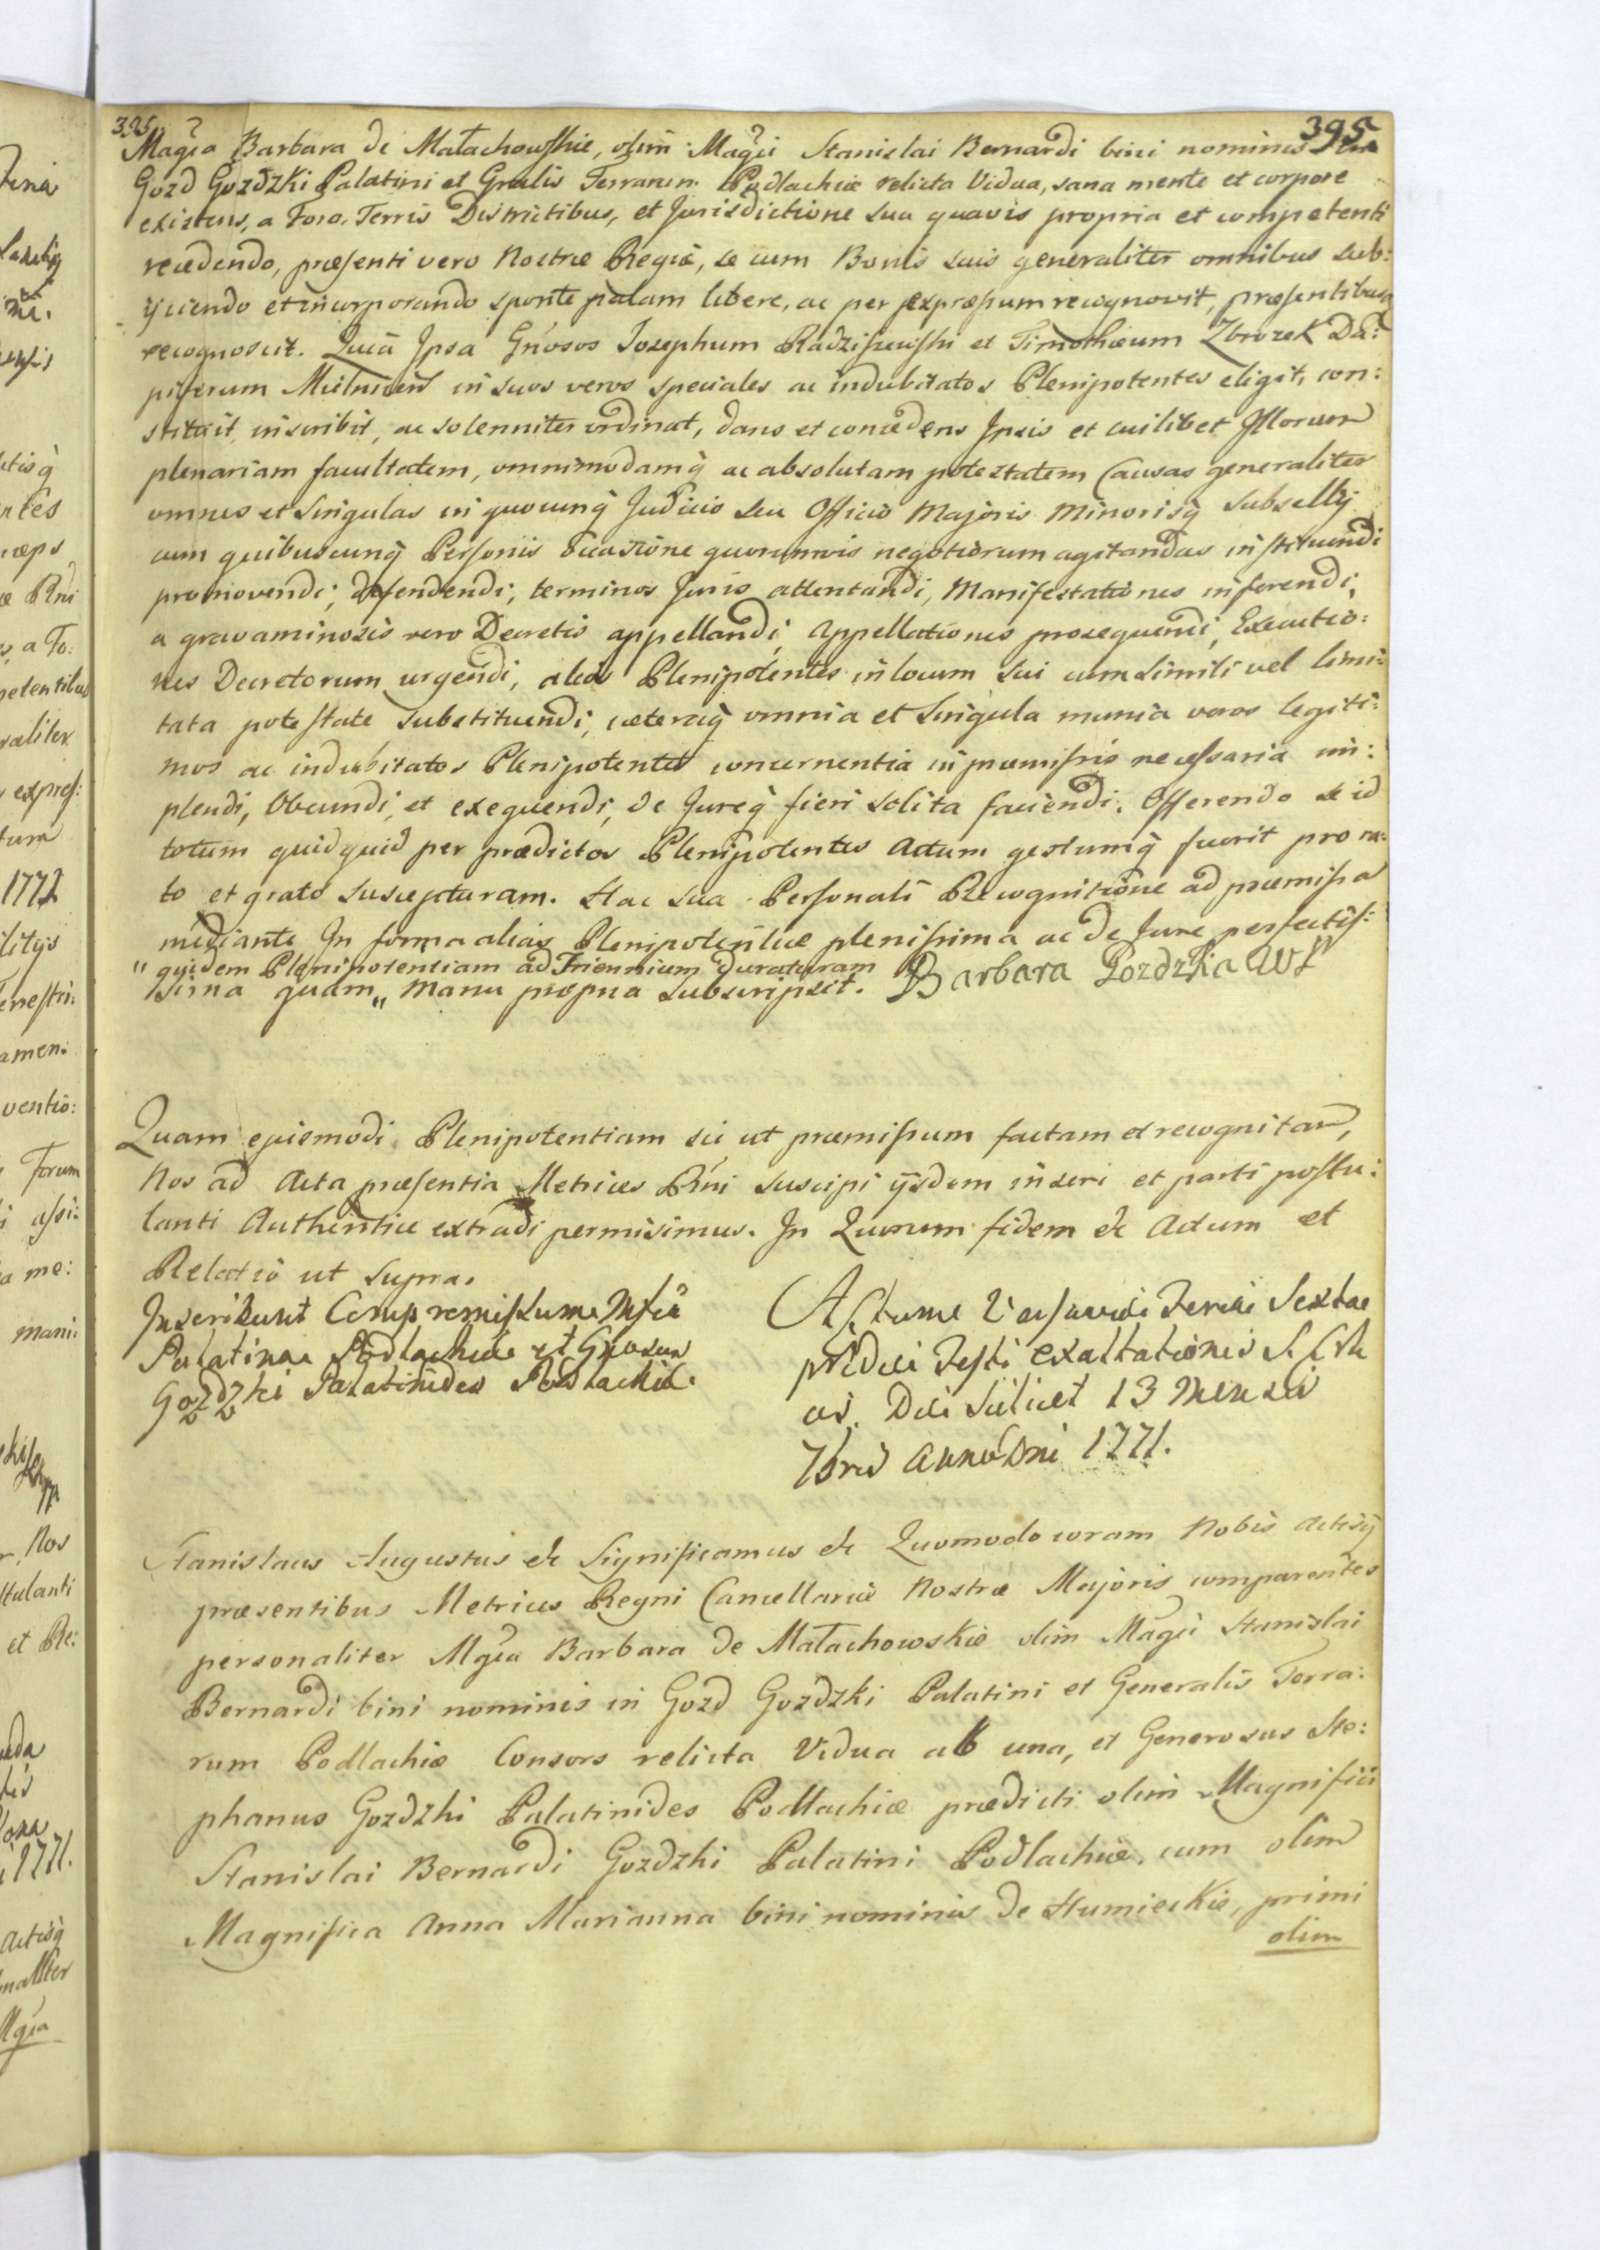 395
395
Magca Barbara de Małachowskie, olim Magci Stanislai Bernardi bini nominis in
Gozd Gozdzki Palatini et Gnalis Terrarum Podlachiæ relicta Vidua, sana mente et corpore
existens, a Foro, Terris Districtibus, et Jurisdictione sua quavis propria et competenti
recedendo, præsenti vero Nostræ Regiæ, se cum Bonis suis generaliter omnibus sub:
ijciendo et incorporando sponte palam libere, ac per expræssum recognovit, præsentibusq
recognoscit. Quia Ipsa Gnosos Josephum Radziszewski et Timotheum Zbrozek Da:
piferum Mielnicen in suos veros speciales ac indubitatos Plenipotentes eligit, con:
stituit, inscribit, ac solenniter ordinat, dans et concedens Ipsis et cuilibet Illorum
plenariam facultatem, omnimodamq ac absolutam potestatem Causas generaliter
omnes et singulas in quocunq Judicio seu Officio Majoris Minorisq Subsellij
cum quibuscunq Personis occasione quorumvis negotiorum agitandas instituendi
promovendi, defendendi, terminos Juris attentandi, Manifestationes inferendi,
a gravaminosis vero Decretis appellandi, Appellationes prosequendi, Executio:
nes Decretorum urgendi, alios Plenipotentes in locum sui cum simili vel limi:
tata potestate substituendi, cæteraq omnia et singula munia veros legiti:
mos ac indubitatos Plenipotentes concernentia in præmissis necessaria im:
plendi, Obeundi, et exequendi, de Jureq fieri solita faciendi. Offerendo se id
totum quidquid per prædictos Plenipotentes actum gestumq fuerit pro ra:
to et grato suscepturam. Hac sua Personali Recognitione ad præmissa
mediante In forma alias Plenipotentiæ plenissima ac de Jure perfectis:
" quidem Plenipotentiam ad Triennium duraturam
sima quam „ manu propria subscripsit. Barbara Gozdzka WP
Quam ejusmodi Plenipotentiam sic ut præmissum factam et recognitam,
Nos ad Acta præsentia Metrices Rni suscipi ijsdem inseri et parti postu:
lanti Authentice extradi permisimus. In Quorum fidem etc Actum et
Relatio ut supra.
Inscribunt Compromissum Mfca
Palatina Podlachiæ et Gnosus
Gozdzki Palatinides Podlachiæ.
Actum Varsaviæ Feria Sexta
pridie Festi exaltationis S. Cru
cis. Die scilicet 13 Mensis
7bris Anno Dni 1771.
Stanislaus Augustus etc Significamus etc Quomodo coram Nobis Actisq
præsentibus Metrices Regni Cancellariæ Nostræ Majoris comparentes
personaliter Mgca Barbara de Małachowskie olim Magci Stanislai
Bernardi bini nominis in Gozd Gozdzki Palatini et Generalis Terra:
rum Podlachiæ Consors relicta Vidua ab una, et Generosus Ste:
phanus Gozdzki Palatinides Podlachiæ prædicti olim Magnifici
Stanislai Bernardi Gozdzki Palatini Podlachiæ, cum olim
Magnifica Anna Marianna bini nominis de Humieckie, primi
olim